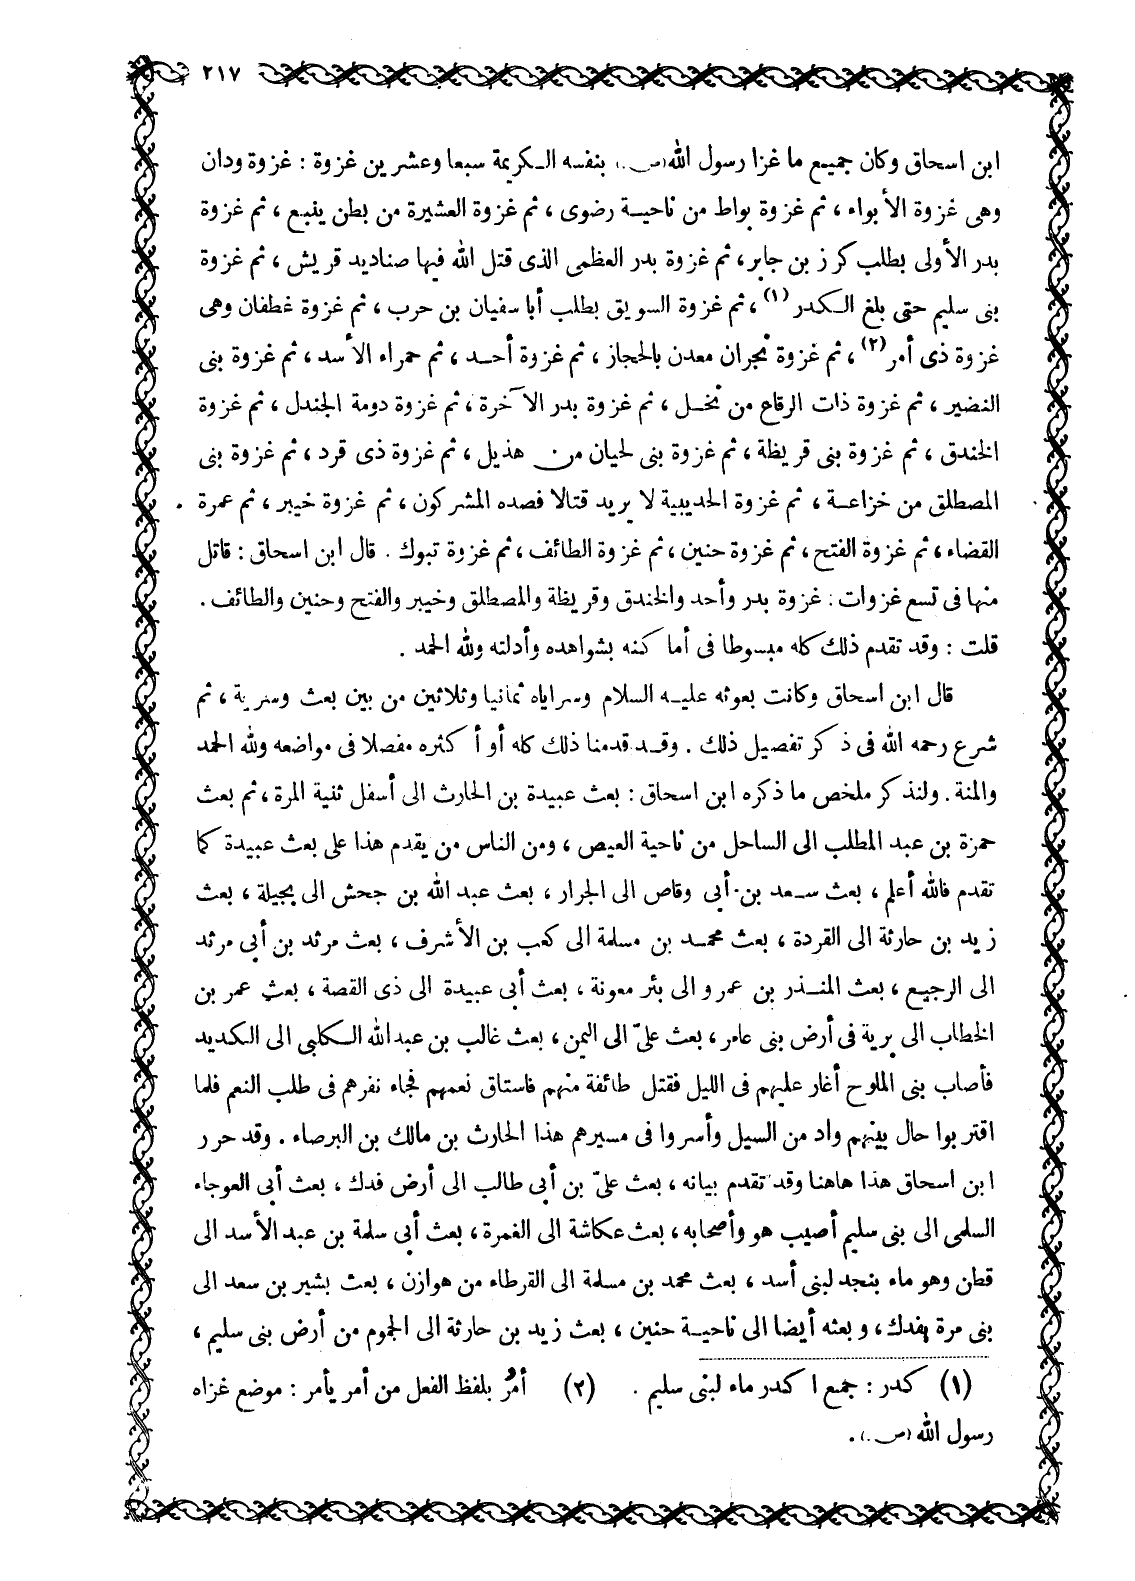 ٢١٧
ابن اسحاق وكان جميع ما غزا رسول الله (ص.) بنفسه الكريمة سبعا وعشرين غزوة : غزوة ودان
وهى غزوة الأبواء ، ثم غزوة بواط من ناحية رضوى ، ثم غزوة العشيرة من بطن ينبع ، ثم غزوة
بدر الأولى بطلب كرز بن جابر، ثم غزوة بدر العظمى الذى قتل الله فيها صناديد قريش ، ثم غزوة
بنى سليم حتى بلغ الكدر (١) ، ثم غزوة السويق بطلب أبا سفيان بن حرب ، ثم غزوة غطفان وهى
غزوة ذى أمر (٢) ، ثم غزوة نجران معدن بالحجاز ، ثم غزوة أحد ، ثم حمراء الأسد ، ثم غزوة بنى
النضير ، ثم غزوة ذات الرقاع من نخل ، ثم غزوة بدر الآخرة ، ثم غزوة دومة الجندل ، ثم غزوة
الخندق ، ثم غزوة بنى قريظة ، ثم غزوة بنى لحيان من هذيل ، ثم غزوة ذى قرد ، ثم غزوة بنى
المصطلق من خزاعة ، ثم غزوة الحديبية لا يريد قتالا فصده المشركون ، ثم غزوة خيبر ، ثم عمرة
القضاء ، ثم غزوة الفتح ، ثم غزوة حنين ، ثم غزوة الطائف ، ثم غزوة تبوك . قال ابن اسحاق : قاتل
منها فى تسع غزوات : غزوة بدر وأحد والخندق وقريظة والمصطلق وخيبر والفتح وحنين والطائف .
قلت : وقد تقدم ذلك كله مبسوطا فى أماكنه بشواهده وأدلته ولله الحمد .
قال ابن اسحاق وكانت بعوثه عليه السلام وسراياه ثمانيا وثلاثين من بين بعث وسرية ، ثم
شرع رحمه الله فى ذكر تفصيل ذلك . وقد قدمنا ذلك كله أو أكثره مفصلا فى مواضعه ولله الحمد
والمنة . ولنذكر ملخص ما ذكره ابن اسحاق : بعث عبيدة بن الحارث الى أسفل ثنية المرة ، ثم بعث
حمزة بن عبد المطلب الى الساحل من ناحية العيص ، ومن الناس من يقدم هذا على بعث عبيدة كما
تقدم فالله أعلم ، بعث سعد بن أبى وقاص الى الجرار ، بعث عبد الله بن جحش الى بجيلة ، بعث
زيد بن حارثة الى القردة ، بعث محمد بن مسلمة الى كعب بن الأشرف ، بعث مرثد بن أبى مرثد
الى الرجيع ، بعث المنذر بن عمرو الى بئر معونة ، بعث أبى عبيدة الى ذى القصة ، بعث عمر بن
الخطاب الى برية فى أرض بنى عامر ، بعث علىّ الى اليمن ، بعث غالب بن عبد الله الكلبى الى الكديد
فأصاب بنى الملوح أغار عليهم فى الليل فقتل طائفة منهم فاستاق نعمهم فجاء نفرهم فى طلب النعم فلما
اقتربوا حال بينهم واد من السيل وأسروا فى مسيرهم هذا الحارث بن مالك بن البرصاء . وقد حرر
ابن اسحاق هذا هاهنا وقد تقدم بيانه ، بعث علىّ بن أبى طالب الى أرض فدك ، بعث أبى العوجاء
السلمى الى بنى سليم أصيب هو وأصحابه ، بعث عكاشة الى الغمرة ، بعث أبى سلمة بن عبد الأسد الى
قطن وهو ماء بنجد لبنى أسد ، بعث محمد بن مسلمة الى القرطاء من هوازن ، بعث بشير بن سعد الى
بنى مرة بفدك ، وبعثه أيضا الى ناحية حنين ، بعث زيد بن حارثة الى الجموم من أرض بنى سليم ،
(١) كدر : جمع اكدر ماء لبنى سليم . (٢) أمُر بلفظ الفعل من أمر يأمر : موضع غزاه
رسول الله (ص.) .